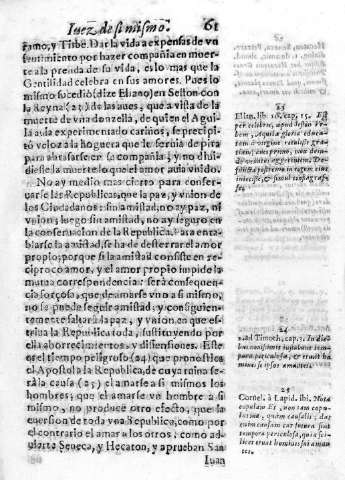 Iuez de si mismo. 61
ramo, y Tisbe. Dar la vida a expensas de vn
sentimiento por hazer compañia en muer-
te a la prenda de su vida, es lo mas que la
Gentilidad celebra en sus amores. Pues lo
mismo sucedió (dize Eliano) en Seston con
la Reyna (23) de las aues, que a vista de la
muerte de vna donzella, de quien el Agui-
la auia experimentado cariños, se precipi-
tò veloz a la hoguera que le seruia de pira
para abrasarse en su compañia; y no diui-
diesse la muerte lo que el amor auia vnido.
No ay medio mas cierto para conser-
uarse las Republicas, que la paz, y vnion de
los Ciudadanos: sin amistad, no ay paz, ni
vnion; luego sin amistad, no ay seguro en
la conseruacion de la Republica. Para enta-
blarse la amistad, se ha de desterrar el amor
propio; porque si la amistad consiste en re-
ciproco amor, y el amor propio impide la
mutua correspondencia: serà consequen-
cia forçosa, que amarse vno a si mismo,
no se puede seguir amistad; y consiguien-
temente faltarà la paz, y vnion, en que es-
triua la Republica toda, sustituyendo por
ella aborrecimientos, y dissensiones. Este
es el tiempo peligroso (24) que pronostica
el Apostol a la Republica, de cuya ruina se-
rà la causa (25) el amarse a si mismos los
hombres; que el amarse vn hombre a si
mismo, no produce otro efecto, que la
euersion de toda vna Republica, como por
el contrario el amar a los otros; como ad-
uierte Seneca, y Hecaton, y aprueban San
Iuan
23
Elian. lib. 16. cap. 15. Est
per celebre, apud Seston Vr-
bem, Aquilæ gloria educa-
tam à virgine retulisse gra-
tiam, aues primo, mox dein-
de venatus aggerentem. De-
functa postremo in rogum eius
iniecisse se, &c simul conflagras-
se.
24
2. ad Timoth. cap. 3. In die-
bus nouissimis instabunt tem-
pora periculosa, & erunt ho-
mines se ipsos amantes.
25
Cornel. à Lapid. ibi. Nota
copulam Et, non tam copu-
latiua, quàm causalis; dat
quàm causam cur futura sint
tempora periculosa, quia sci-
licet erunt homines sui aman-
tes.